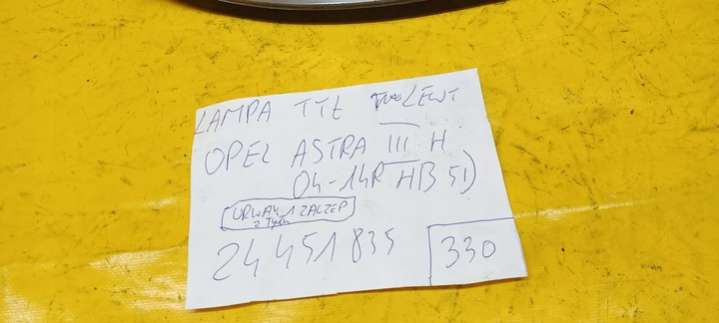 LAMPA TYŁ LEWY
OPEL ASTRA III H
04-14R HB 5D
URWANY 1 ZACZEP
Z TYŁU
24451835
330